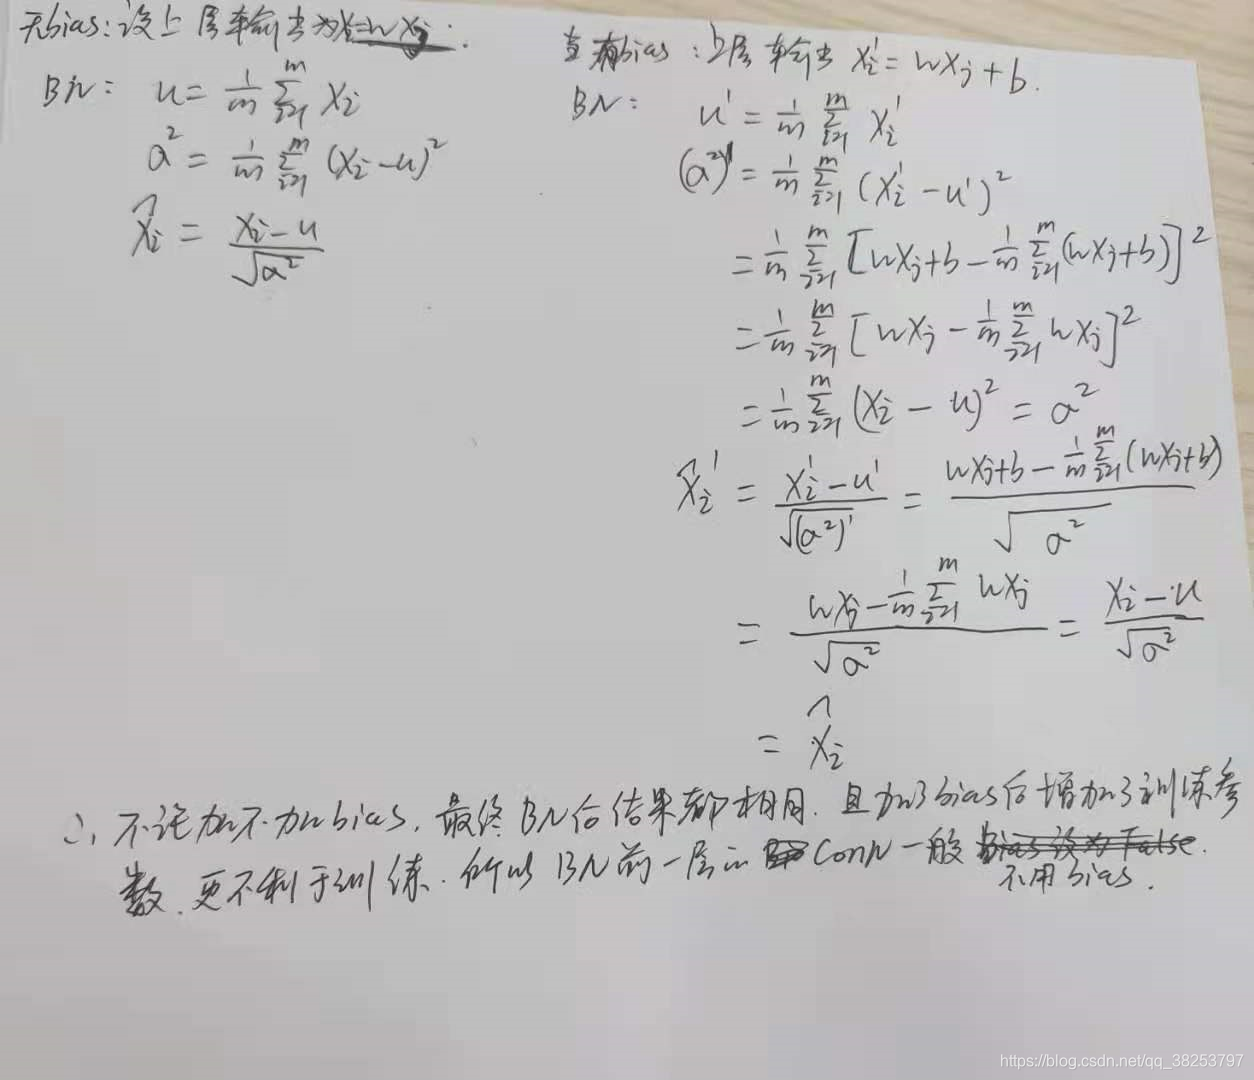 无bias:设上层输出为xi=wxj.
BN: u = 1/m Σ(i=1→m) xi
a² = 1/m Σ(i=1→m) (xi-u)²
x̂i = (xi-u)/√a²
有bias:上层输出 xi' = wxj+b.
BN: u' = 1/m Σ(i=1→m) xi'
(a²)' = 1/m Σ(i=1→m) (xi'-u')²
= 1/m Σ(i=1→m) [wxj+b - 1/m Σ(i=1→m) (wxj+b)]²
= 1/m Σ(i=1→m) [wxj - 1/m Σ(i=1→m) wxj]²
= 1/m Σ(i=1→m) (xi - u)² = a²
x̂i' = (xi'-u')/√(a²)' = (wxj+b - 1/m Σ(i=1→m) (wxj+b))/√a²
= (wxj - 1/m Σ(i=1→m) wxj)/√a² = (xi-u)/√a²
= x̂i
∴ 不论加不加bias,最终BN后结果都相同.且加了bias后增加了训练参
数、更不利于训练.所以BN前一层的 Conv一般 bias设为False.
不用bias.
https://blog.csdn.net/qq_38253797